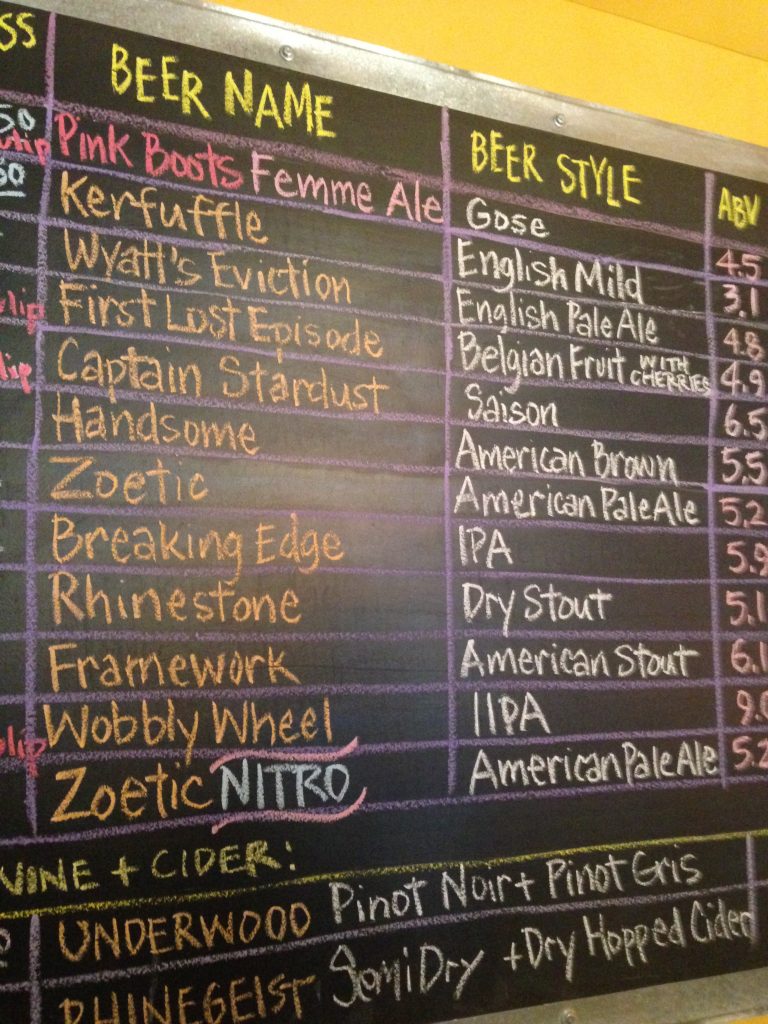 SS BEER NAME BEER STYLE ABV
50 Pink Boots Femme Ale Gose 4.5
Kerfuffle English Mild 3.1
Wyatt's Eviction English Pale Ale 4.8
First Lost Episode Belgian Fruit WITH CHERRIES 4.9
Captain Stardust Saison 6.5
Handsome American Brown 5.5
Zoetic American Pale Ale 5.2
Breaking Edge IPA 5.9
Rhinestone Dry Stout 5.1
Framework American Stout 6.1
Wobbly Wheel IIPA 9.0
Zoetic NITRO American Pale Ale 5.2
WINE + CIDER:
UNDERWOOD Pinot Noir + Pinot Gris
RHINEGEIST Semi Dry + Dry Hopped Cider